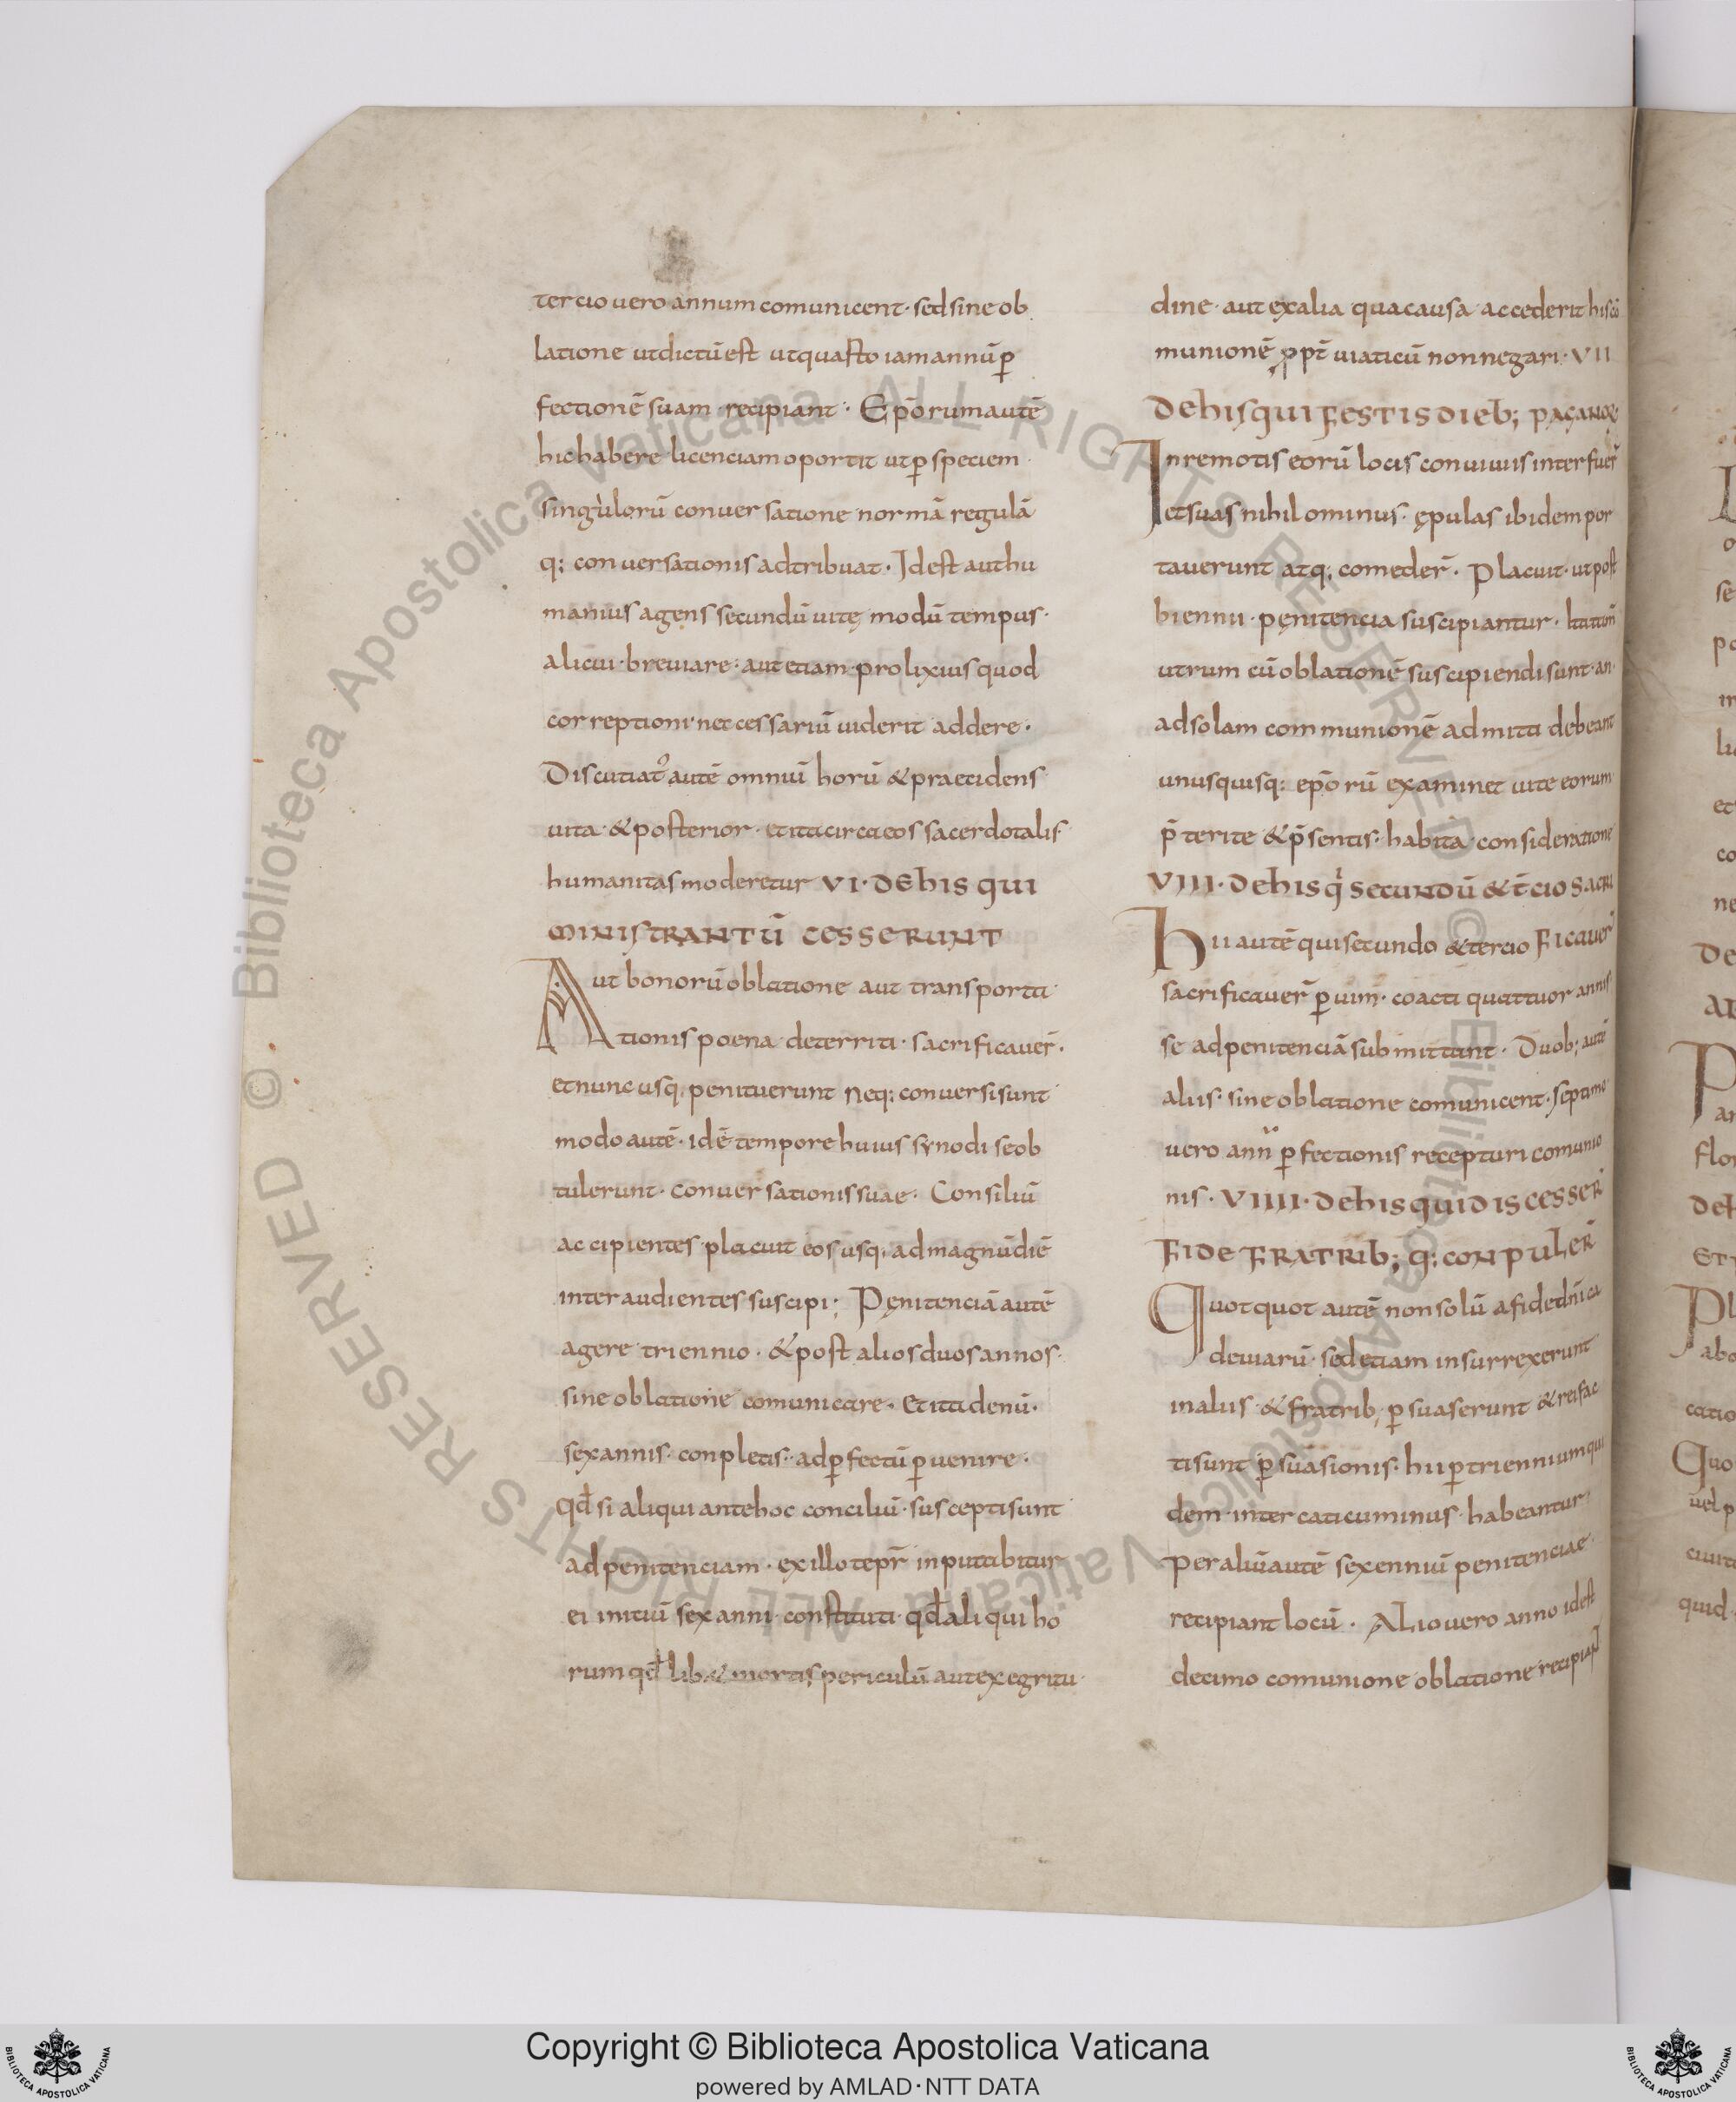 tercio uero annum comunicent· sed sine ob
latione ut dictū est ut quarto iam annū ꝑ
fectionē suam recipiant· Epōrum autē
hic habere licenciam oportit ut ꝑ speciem
singulorū conuersatione normā regulā
q; conuersationis adtribuat· Idest aut hu
manius agens secundū uitę modū tempus·
alicui· breuiare· aut etiam prolixius quod
correptioni neccessariū uiderit addere·
Discutiat᾽ autē omniū horū & praecidens
uita & posterior· et ita circa eos sacerdotalis
humanitas moderetur VI· DE his qui
MINISTRANTŪ CESSERUNT
Aut bonorū oblatione aut transporta
tionis poena deterriti· sacrificauer̄·
et nunc usq; penituerunt neq; conuersi sunt
modo autē· idē tempore huius synodi se ob
tulerunt· conuersationis suae· Consiliū
accipientes placuit eos usq; ad magnū diē
inter audientes suscipi; Pęnitenciā autē
agere triennio· & post alios duos annos·
sine oblatione comunicare· et ita denū·
sex annis· conpletis· ad ꝑfectū ꝑuenire·
qd̄ si aliqui ante hoc conciliū· suscepti sunt
ad penitenciam· ex illo tepr̄ inputabitur
ei initiū sex anni· constituti· qd̄ aliqui ho
rum qd̄ lib& mortis periculū aut ex egritu
dine· aut ex alia qua causa accederit his cō
munionē ꝓpt̄ uiaticū non negari· VII
De his qui FESTIS DIEB; PAGANOꝜ
In remotis eorū locis conuiuiis interfuer̄
et suas nihilominus· ępulas ibidem por
tauerunt atq; comeder̄· Placuit· ut post
biennii· pęnitencia suscipiantur·
utrum cū oblationē suscipiendi sunt· an·
ad solam communionē admiti debeant
unusquisq; epōrū examinet uite eorum
p̄terite & p̄sentis· habita consideratione
VIII· De his q̇ secundū & t̄cio sacri
Hii autē qui secundo & tercio Ficauer̄
sacrificauer̄ ꝑ uim· coacti quattuor annis
se ad penitenciā submittant· Duob; autē
aliis· sine oblatione comunicent· septimo
uero ann̈ ꝑfectionis recepturi comunio
nis· VIIII· De his qui discesser̄
FIDE FRATRIB; q; CONPULER̄
Quotquot autē non solū a fide dn̄ica
deuiarū· sed etiam insurrexerunt
in aliis & fratrib; ꝑsuaserunt & rei fac
ti sunt ꝑsuasionis· hii ꝑ triennium qui
dem· inter caticuminus· habeantur
Per aliū autē sexenniū penitenciae
recipiant locū· Alio uero anno idest
decimo comunione oblatione recipiant
Copyright © Biblioteca Apostolica Vaticana
powered by AMLAD·NTT DATA